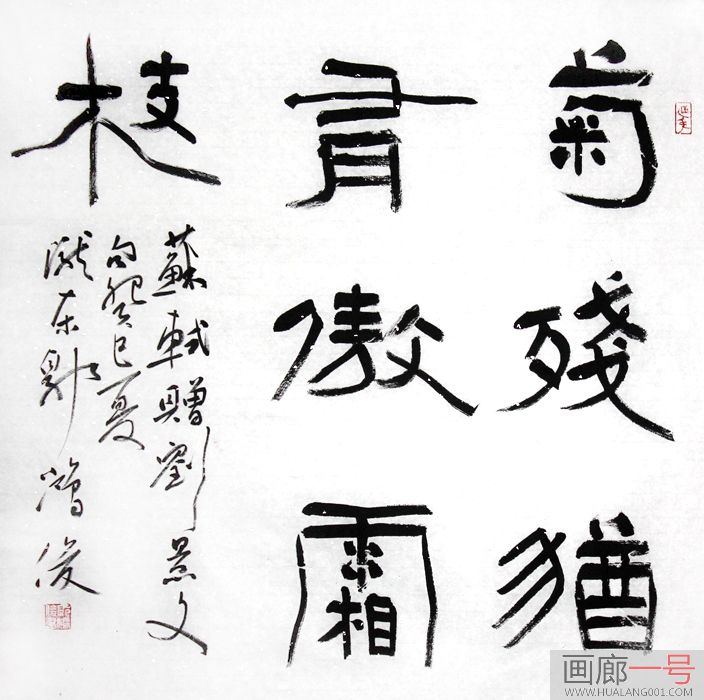 菊殘猶
有傲霜
枝
蘇軾贈劉景文
句癸巳夏
隴東 鴻俊
画廊一号
WWW.HUALANG001.COM